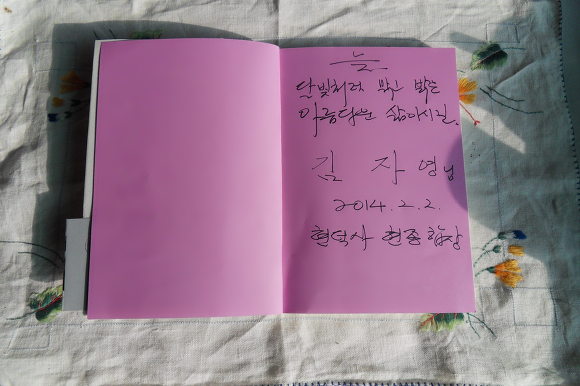 늘
달빛처럼 맑고 밝은
아름다운 삶이시길.
김 자 영님
2014. 2. 2.
현덕사 현종 합장